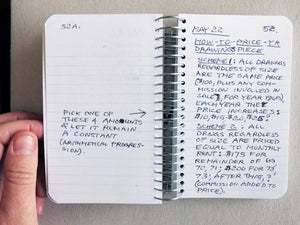 52A.
PICK ONE OF
THESE 4 AMOUNTS
& LET IT REMAIN
A CONSTANT
(ARITHMETICAL PROGRES-
SION)
MAY 22 52.
HOW-TO-PRICE-YR
DRAWINGS PIECE
SCHEME 1: ALL DRAWINGS
REGARDLESS OF SIZE
ARE THE SAME PRICE
$100, PLUS ANY COM-
MISSION INVOLVED IN
SALE, FOR YEAR
EACH YEAR THE
PRICE INCREASES
$10, $15, $20, $25.
SCHEME 2: ALL
DRGS REGARDLESS
OF SIZE ARE PRICED
EQUAL TO MONTHLY
RENT: $175 FOR
REMAINDER OF 69
70, 71; $200 FOR 72,
73; AFTER THAT, ?
(COMMISSION ADDED TO
PRICE).